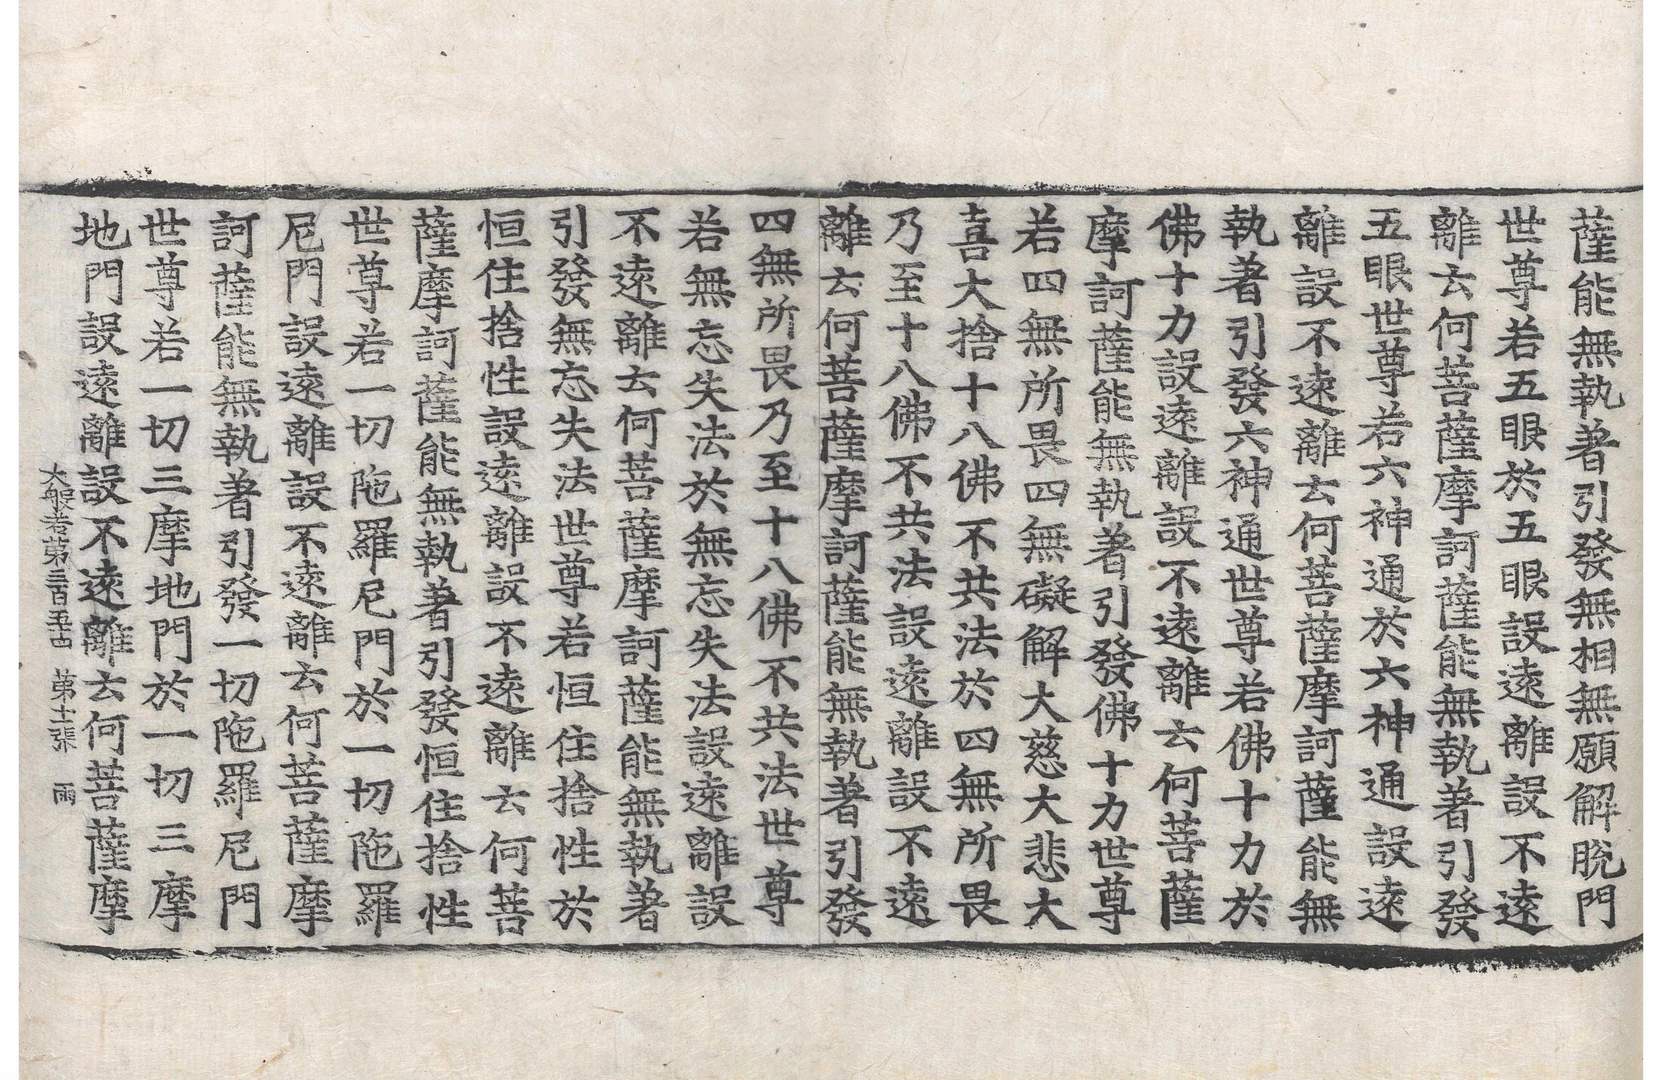 薩能無執著引發無相無願解脫門
世尊若五眼於五眼設遠離設不遠
離云何菩薩摩訶薩能無執著引發
五眼世尊若六神通於六神通設遠
離設不遠離云何菩薩摩訶薩能無
執著引發六神通世尊若佛十力於
佛十力設遠離設不遠離云何菩薩
摩訶薩能無執著引發佛十力世尊
若四無所畏四無礙解大慈大悲大
喜大捨十八佛不共法於四無所畏
乃至十八佛不共法設遠離設不遠
離云何菩薩摩訶薩能無執著引發
四無所畏乃至十八佛不共法世尊
若無忘失法於無忘失法設遠離設
不遠離云何菩薩摩訶薩能無執著
引發無忘失法世尊若恒住捨性於
恒住捨性設遠離設不遠離云何菩
薩摩訶薩能無執著引發恒住捨性
世尊若一切陁羅尼門於一切陁羅
尼門設遠離設不遠離云何菩薩摩
訶薩能無執著引發一切陁羅尼門
世尊若一切三摩地門於一切三摩
地門設遠離設不遠離云何菩薩摩
大般若第三百五十四 第十二張 雨